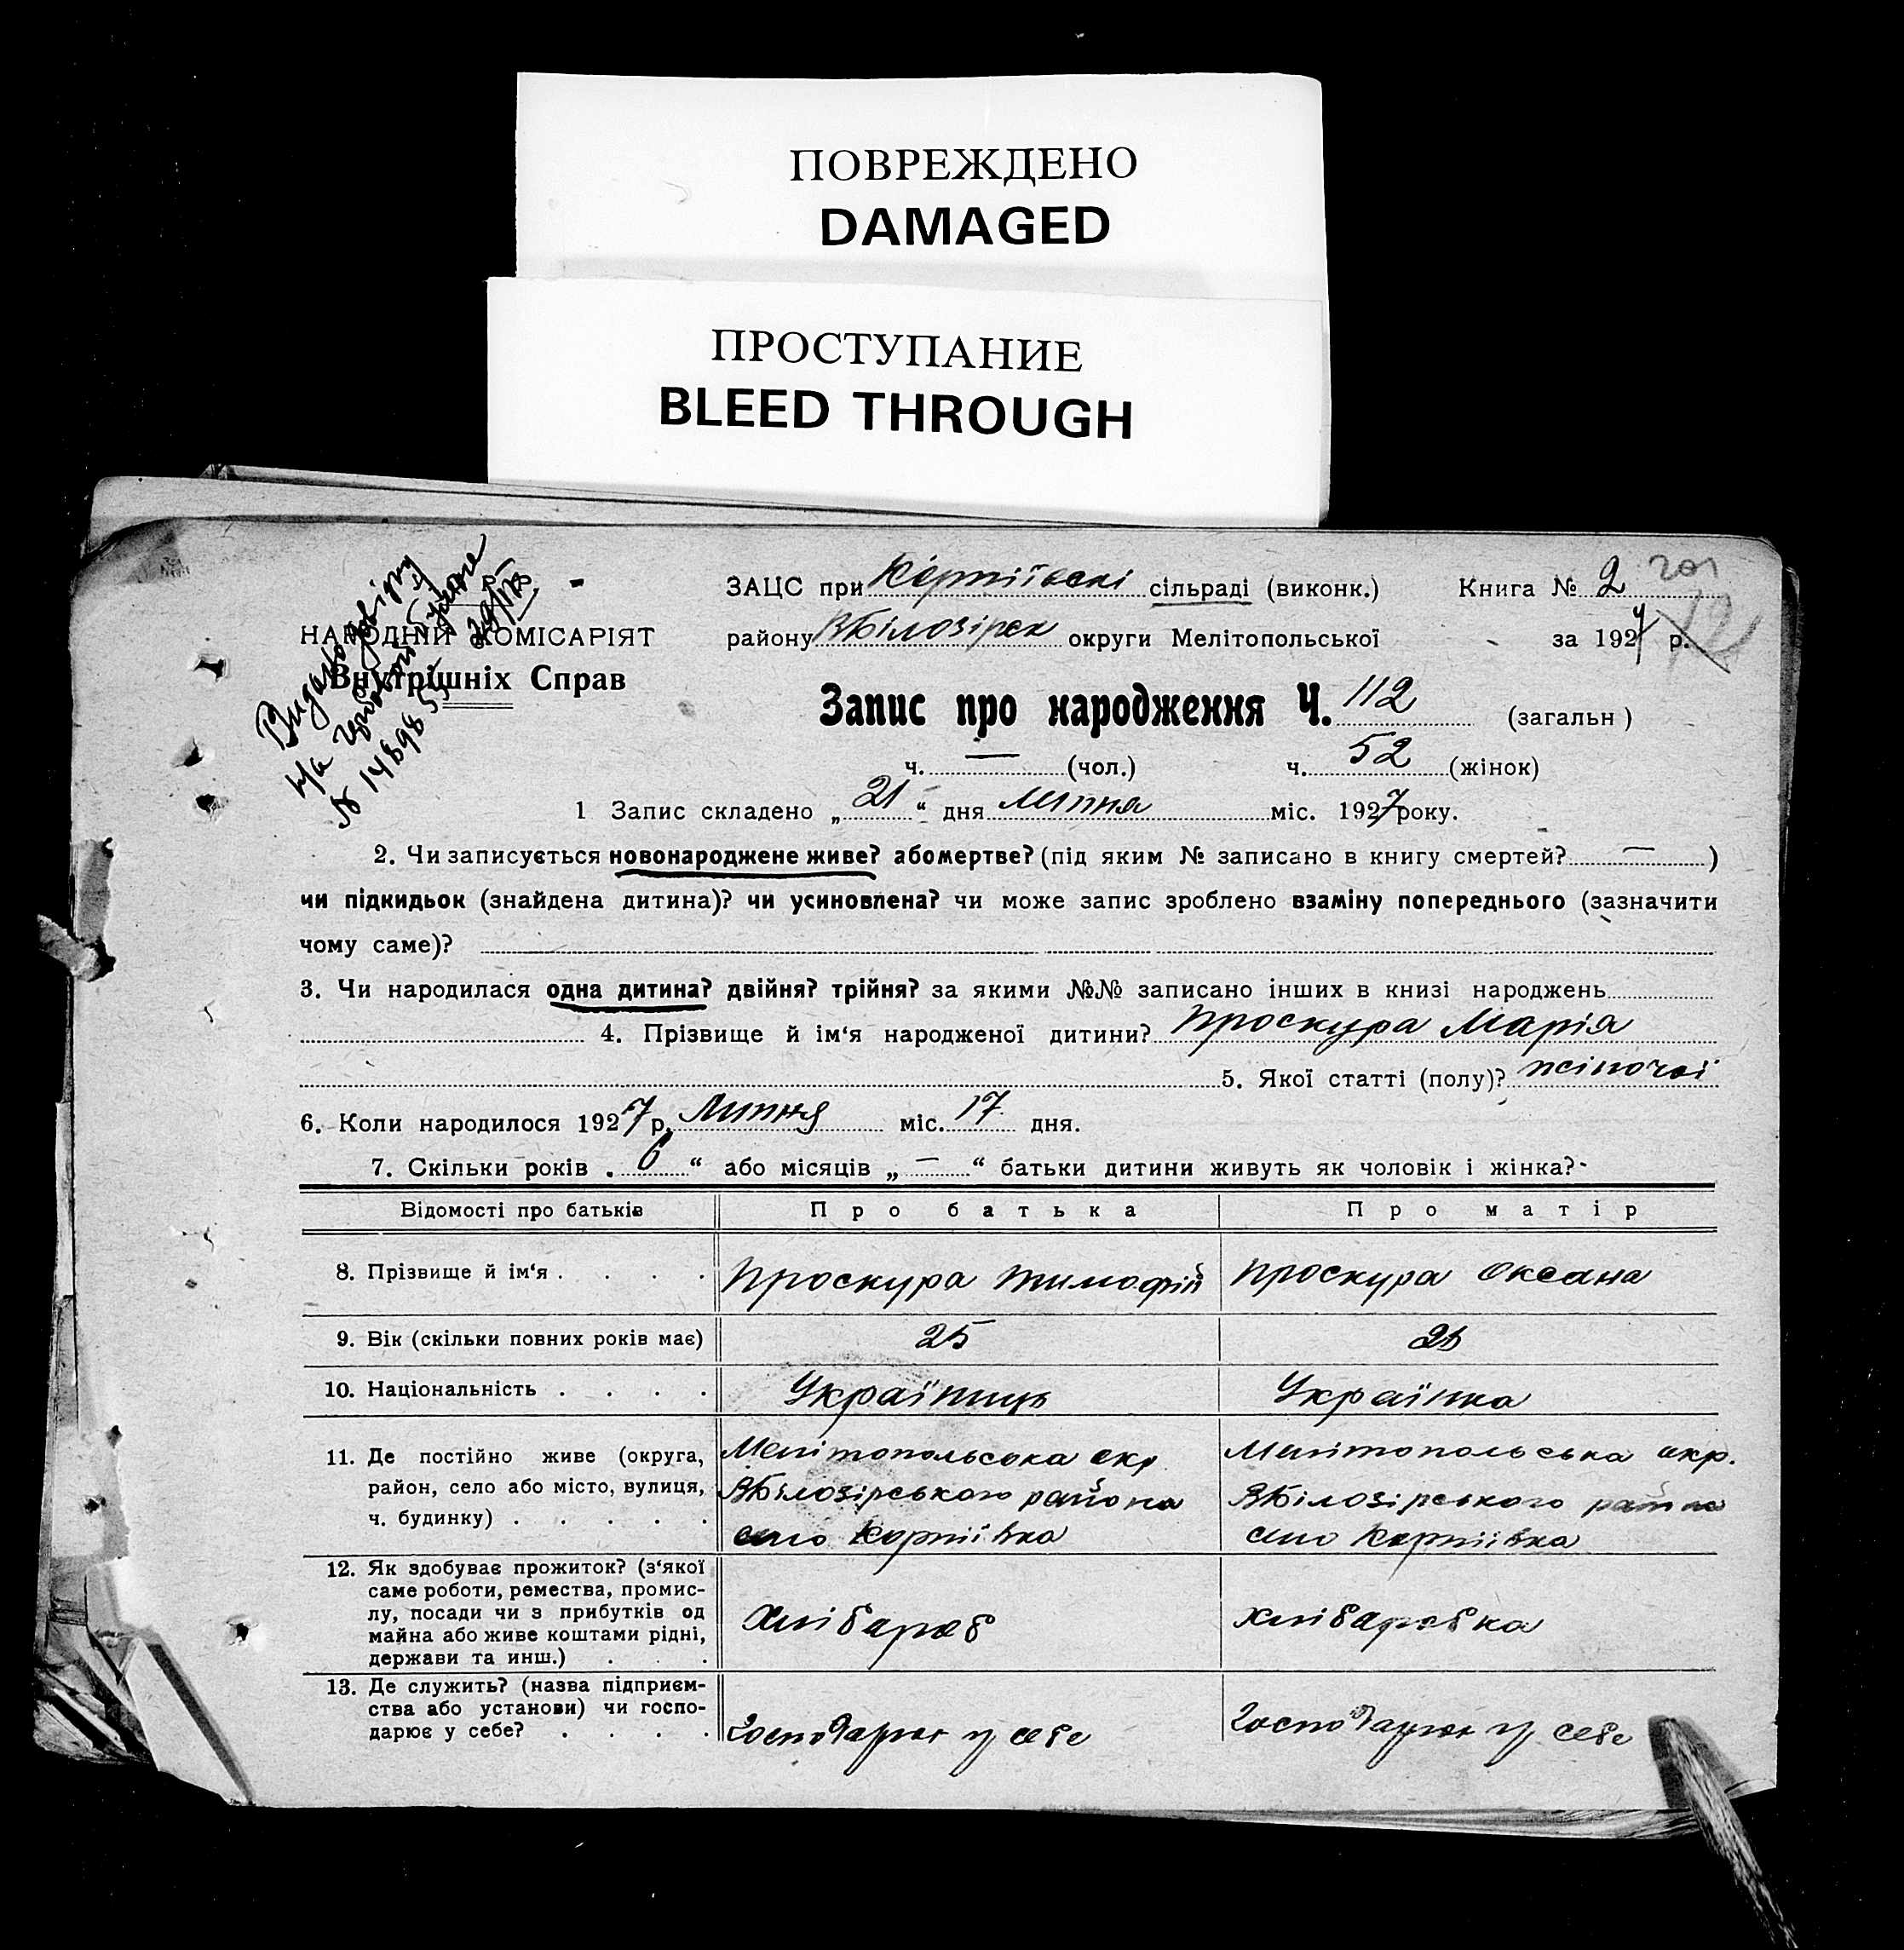 ПОВРЕЖДЕНО
DAMAGED
ПРОСТУПАНИЕ
BLEED THROUGH
№ 148985
НАРОДНІЙ КОМІСАРІЯТ
Внутрішніх Справ
ЗАЦС при сільраді (виконк.) Книга № 2
району ВБілозірск округи Мелітопольської за 1927 р.
Запис про народження Ч. 112 (загальн)
ч. — (чол.) ч. 52 (жінок)
1 Запис складено „ 21 “ дня Липня міс. 1927 року.
2. Чи записується новонароджене живе? або мертве? (під яким № записано в книгу смертей? — )
чи підкидьок (знайдена дитина)? чи усиновлена? чи може запис зроблено взаміну попереднього (зазначити
чому саме)?
3. Чи народилася одна дитина? двійня? трійня? за якими №№ записано інших в книзі народжень
4. Прізвище й ім‘я народженої дитини? Проскура Марія
5. Якої статті (полу)? жіночої
6. Коли народилося 1927 р. Липня міс. 17 дня.
7. Скільки років „ 6 “ або місяців „ — “ батьки дитини живуть як чоловік і жінка?
Відомості про батьків Про батька Про матір
8. Прізвище й ім‘я . . . . Проскура Тимофій Проскура Оксана
9. Вік (скільки повних років має) 25 25
10. Національність . . . . Українць Українка
11. Де постійно живе (округа, район, село або місто, вулиця, ч. будинку) . . . . .
Мелітопольська окр
ВБілозірського района
село
Мелітопольська окр.
ВБілозірського района
село
12. Як здобуває прожиток? (з‘якої
саме роботи, ремества, промис-
лу, посади чи з прибутків од
майна або живе коштами рідні,
держави та инш.) . . .
Хлібароб Хлібаробка
13. Де служить? (назва підприєм-
ства або установи) чи госпо-
дарює у себе? . . . .
Господарює у себе Господарює у себе